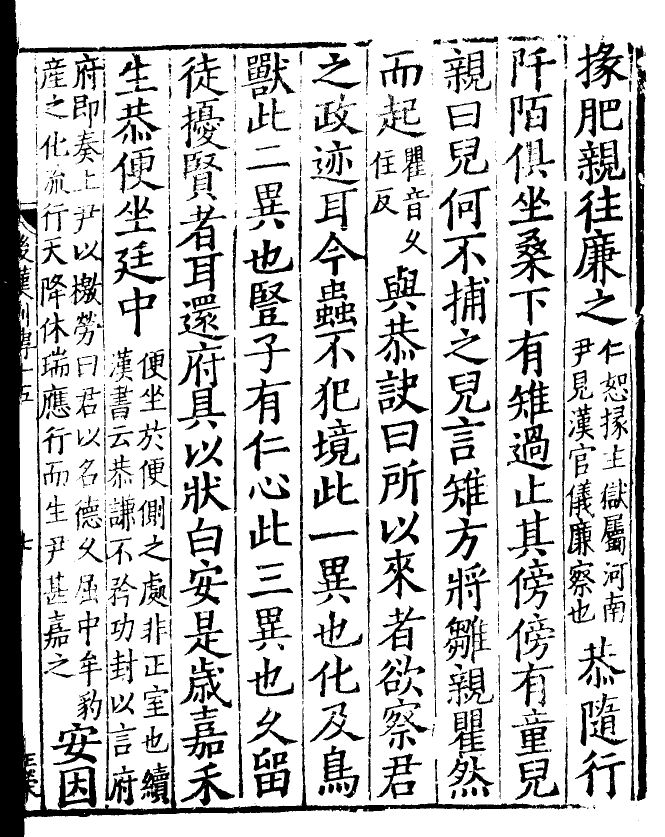 掾肥親往廉之
仁恕掾主獄屬河南
尹見漢官儀廉察也
恭隨行
阡陌俱坐桑下有雉過止其傍傍有童兒
親曰兒何不捕之兒言雉方將雛親瞿然
而起
瞿音久
住反
與恭訣曰所以來者欲察君
之政迹耳今蟲不犯境此一異也化及鳥
獸此二異也豎子有仁心此三異也久留
徒擾賢者耳還府具以狀白安是歲嘉禾
生恭便坐廷中
便坐於便側之處非正室也續
漢書云恭謙不矜功封以言府
府即奏上尹以檄勞曰君以名德久屈中牟豹
産之化流行天降休瑞應行而生尹甚嘉之
安因
後漢列傳十五
七